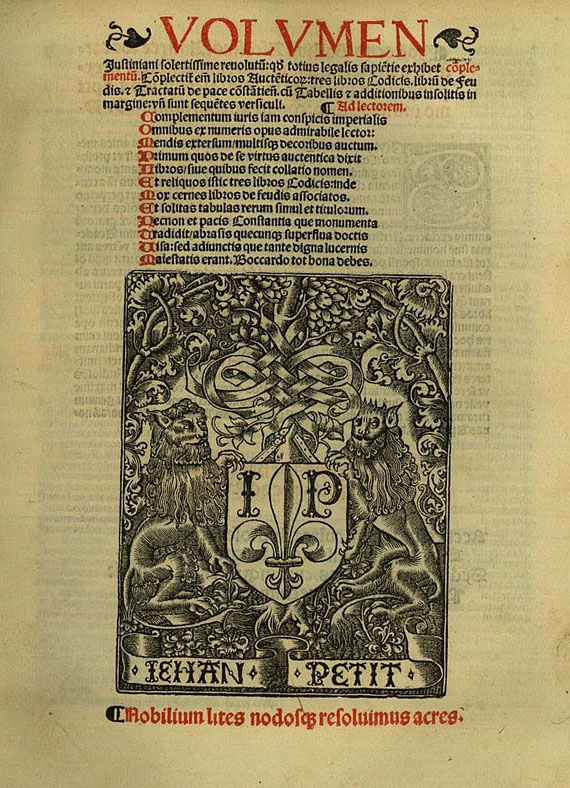 VOLVMEN
Justiniani solertissime reuolutũ: qď totius legalis sapiẽtie exhibet cõple-
mentũ. Cõplectit̃ em̃ libros Auctẽticoꝝ: tres libros Codicis. librũ de Feu
dis. ⁊ Tractatũ de pace cõstãtieñ. cũ Tabellis ⁊ additionibus insolitis in
margine: vñ sunt sequẽtes versiculi. ¶ Ad lectorem.
Complementum iuris iam conspicis imperialis
Omnibus ex numeris opus admirabile lector:
Mendis extersum/multisqȝ decoribus auctum.
Primum quos de se virtus auctentica dixit
Libros/siue quibus fecit collatio nomen.
Et reliquos istic tres libros Codicis: inde
Mox cernes libros de feudis associatos.
Et solitas tabulas rerum simul et titulorum.
Necnon et pacis Constantia que monumenta
Tradidit/abrasis quecunqȝ superflua doctis
Uisa: sed adiunctis que tante digna lucernis
Maiestatis erant. Boccardo tot bona debes.
I P
IEHAN PETIT
¶ Nobilium lites nodosqȝ resoluimus acres.